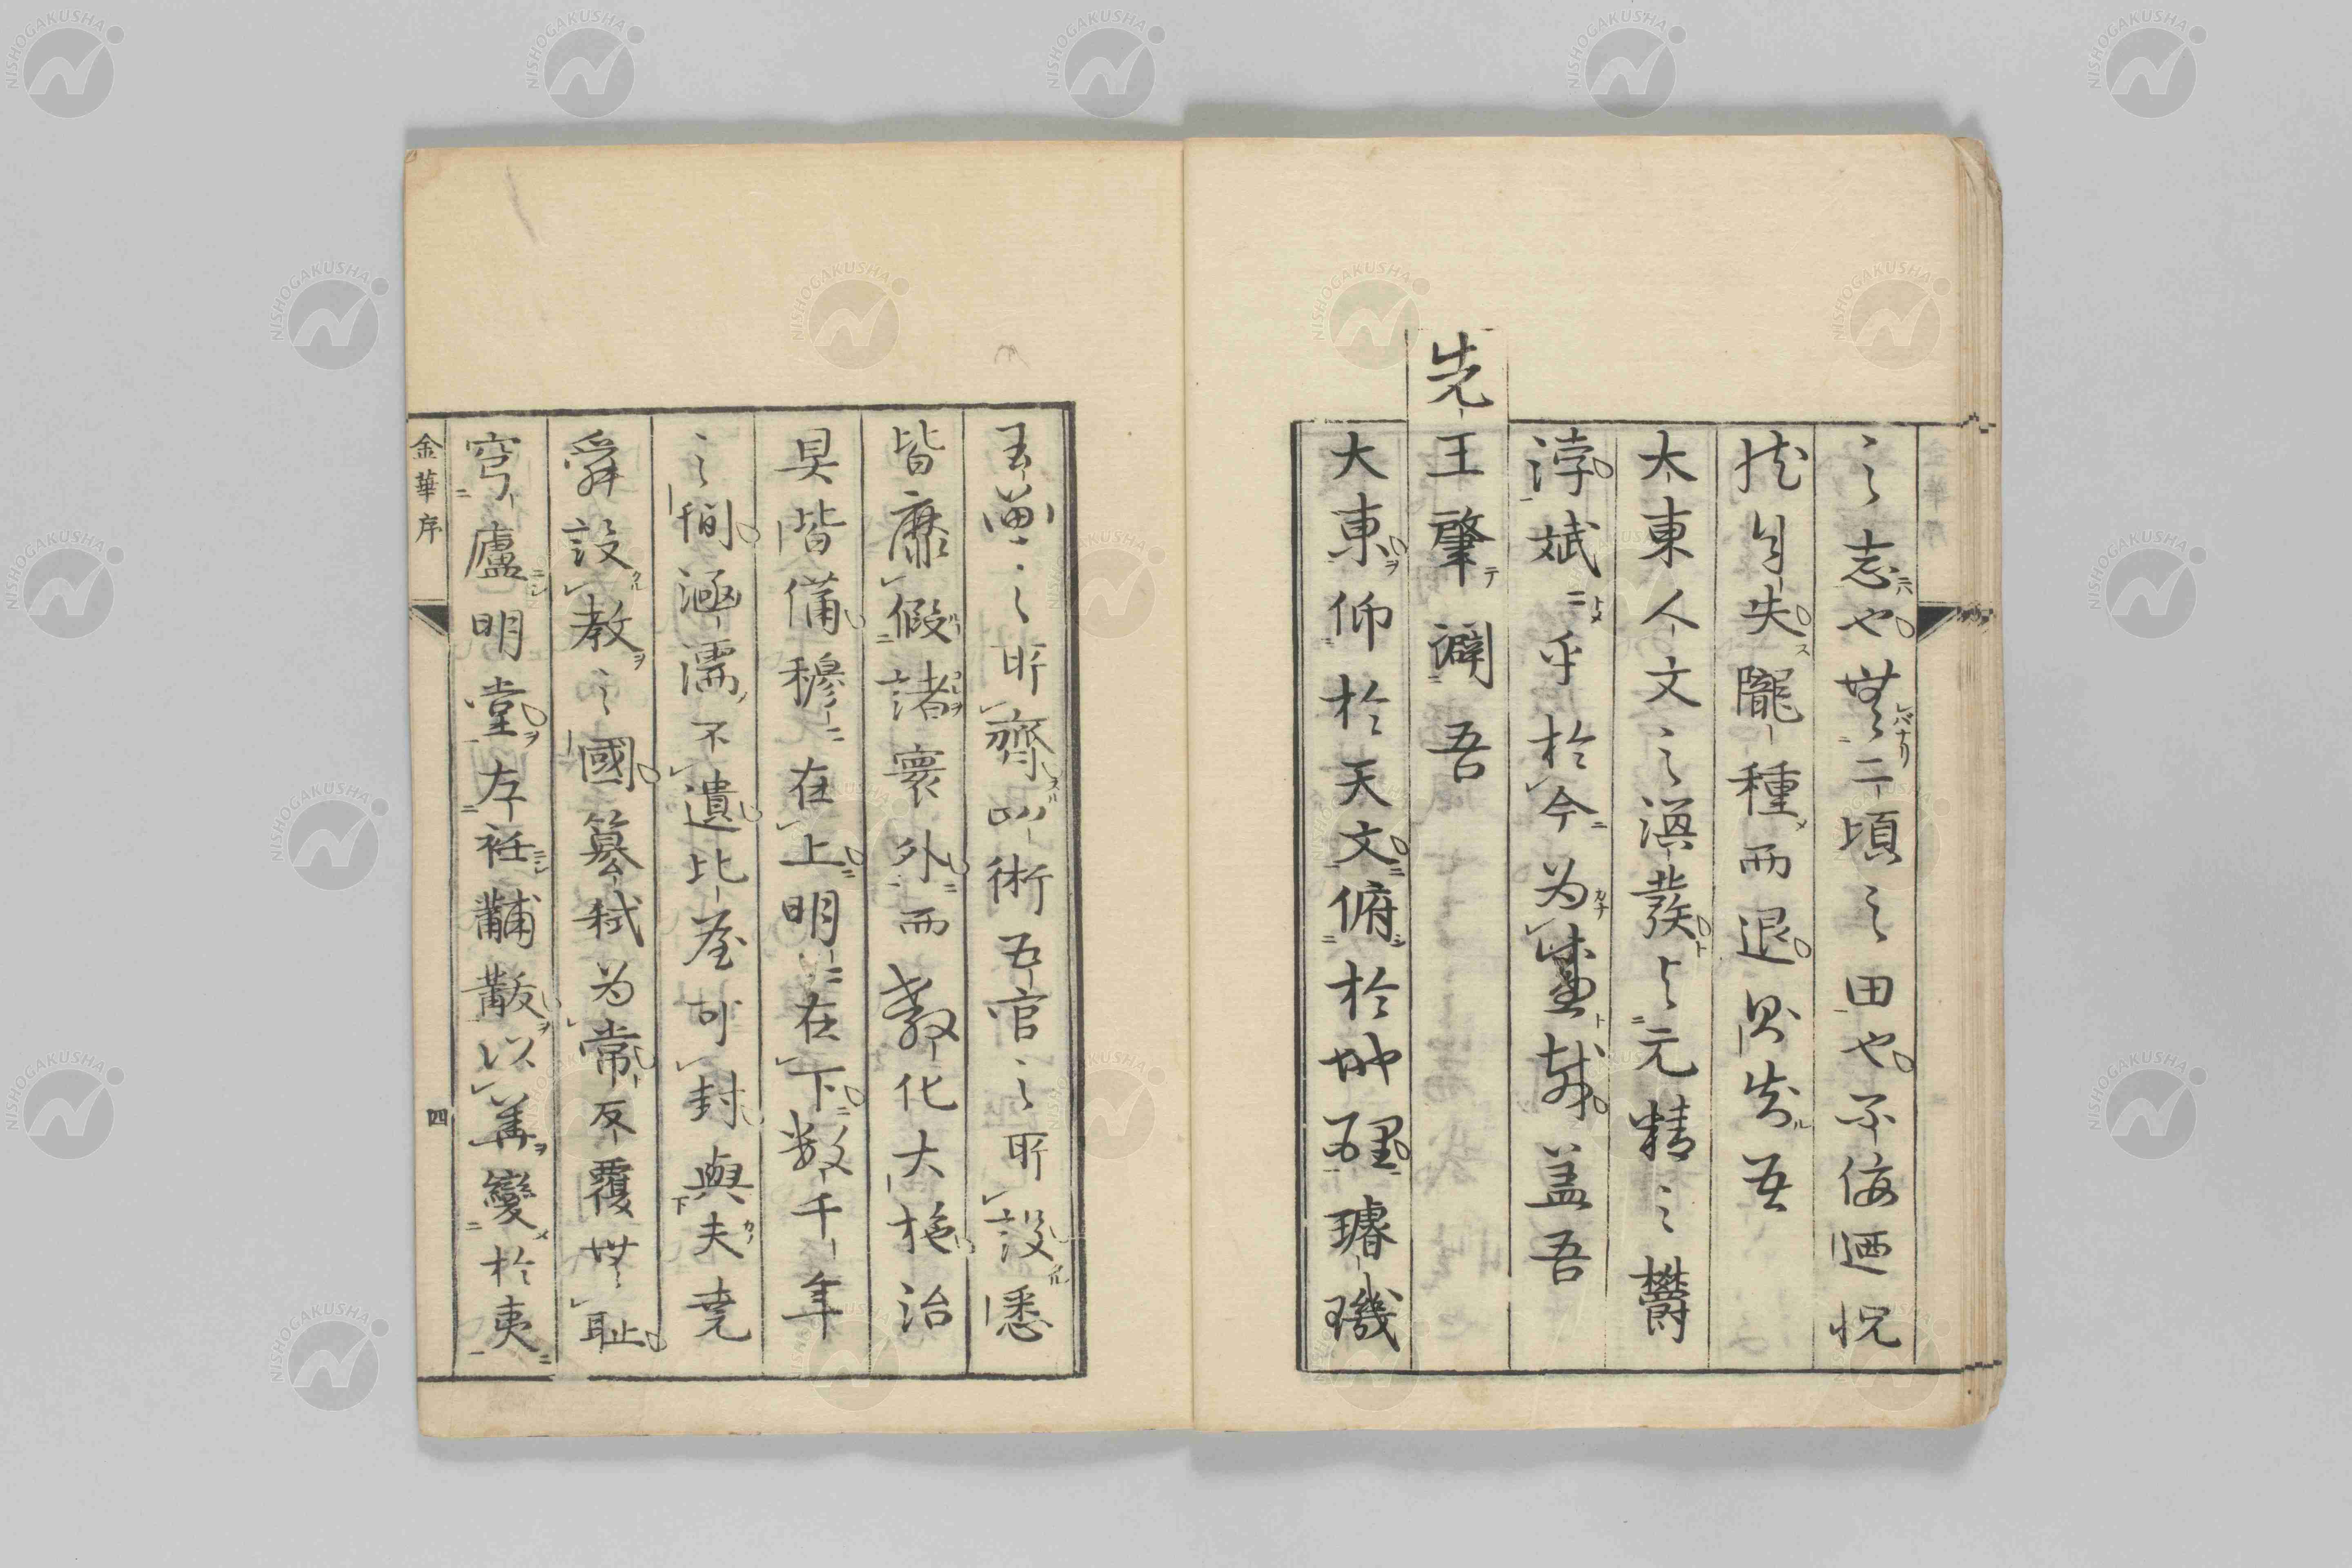 之志也無二頃之田也不佞迺怳
怳自失隴種而退則嵗吾
大東人文之渢發與元精之欝
浡斌斌乎於今為盛哉蓋吾
先王肇闢吾
大東仰於天文俯於地理璿璣
玉衡之所齊以術五官之所設悉
皆靡假諸寰外而教化大施治
具皆備穆穆在上明明在下数千年
之間涵濡不遺比屋可封與夫堯
舜設教之國簒弑為常反覆無耻
穹廬明堂左衽黼黻以華變於夷
金華序
四
NISHOGAKUSHA